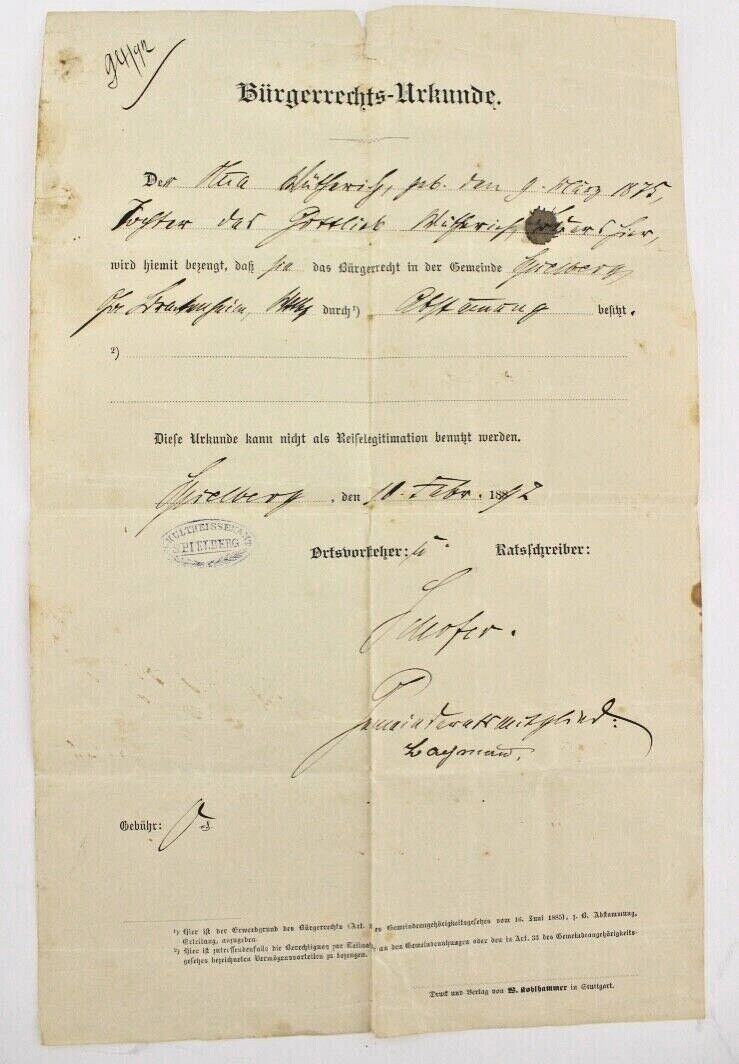 Bürgerrechts-Urkunde.
Der geb. den 9. März 1875,
Tochter des Gottlieb hier,
wird hiemit bezeugt, daß sie das Bürgerrecht in der Gemeinde Spielberg,
Brackenheim, durch ¹) Abstammung besitzt.
²)
Diese Urkunde kann nicht als Reiselegitimation benutzt werden.
Spielberg, den 10. Febr. 1892
SCHULTHEISSENAMT
SPIELBERG
Ortsvorsteher: u. Ratsschreiber:
Schofer.
Gemeinderatsmitglied:
Bachmann.
Gebühr:
¹) Hier ist der Erwerbgrund des Bürgerrechts (Art. des Gemeindeangehörigkeitsgesetzes vom 16. Juni 1885), z. B. Abstammung,
Erteilung, anzugeben.
²) Hier ist zutreffendenfalls die Berechtigung zur Teilnahme an den Gemeindenutzungen oder den in Art. 35 des Gemeindeangehörigkeits-
gesetzes bezeichneten Vermögensvorteilen zu bezeugen.
Druck und Verlag von W. Kohlhammer in Stuttgart.